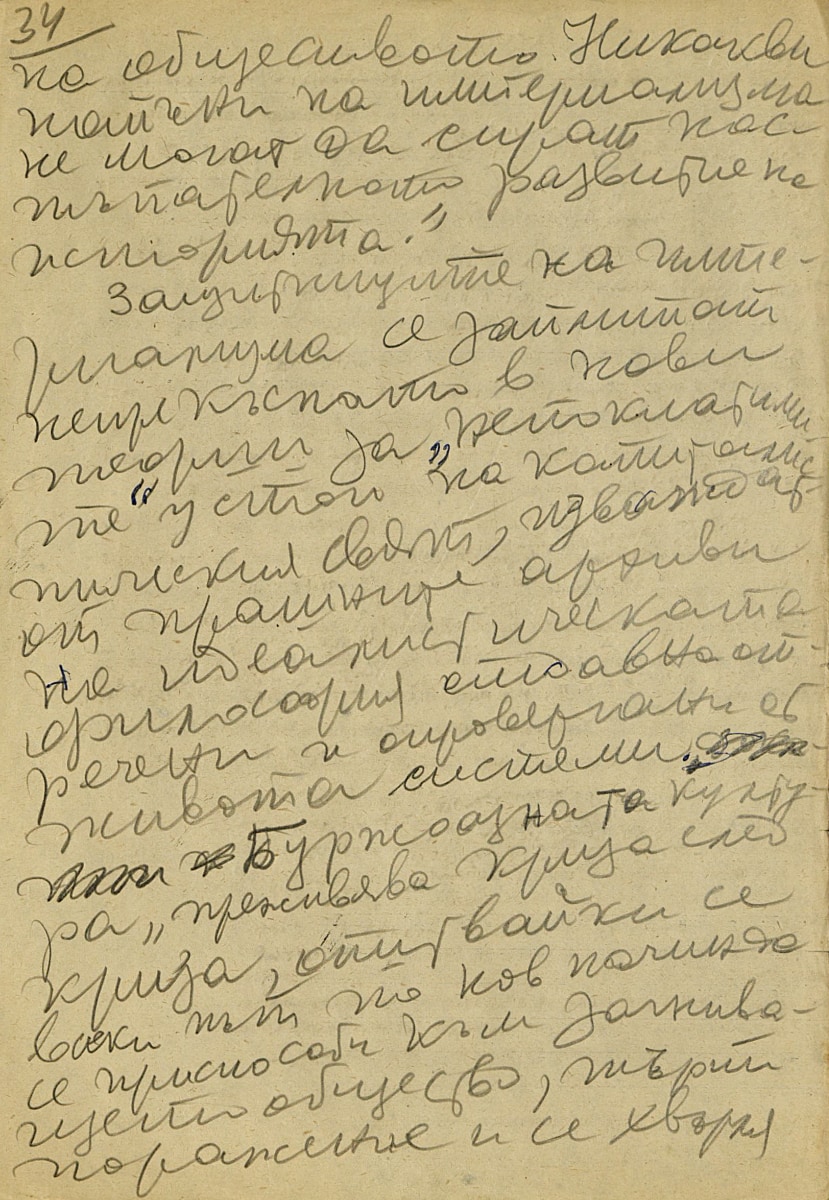 34
на обществото. Никакви
напъни на империализма
не могат да спрат нас-
тъпателното развитие на
историята."
Защитниците на импе-
риализма се заплитат
непрекъснато в нови
теории за "непоклатими-
те" устои на капиталис-
тическия свят, изваждат
от прашните архиви
на идеалистическата
философия отдавна от-
речени и опровергани от
живота системи.
Буржоазната култу-
ра "преживява криза след
криза, опитвайки се
всеки път по нов начин да
се приспособи към загнива-
щето общество, търпи
поражение и се хвърля